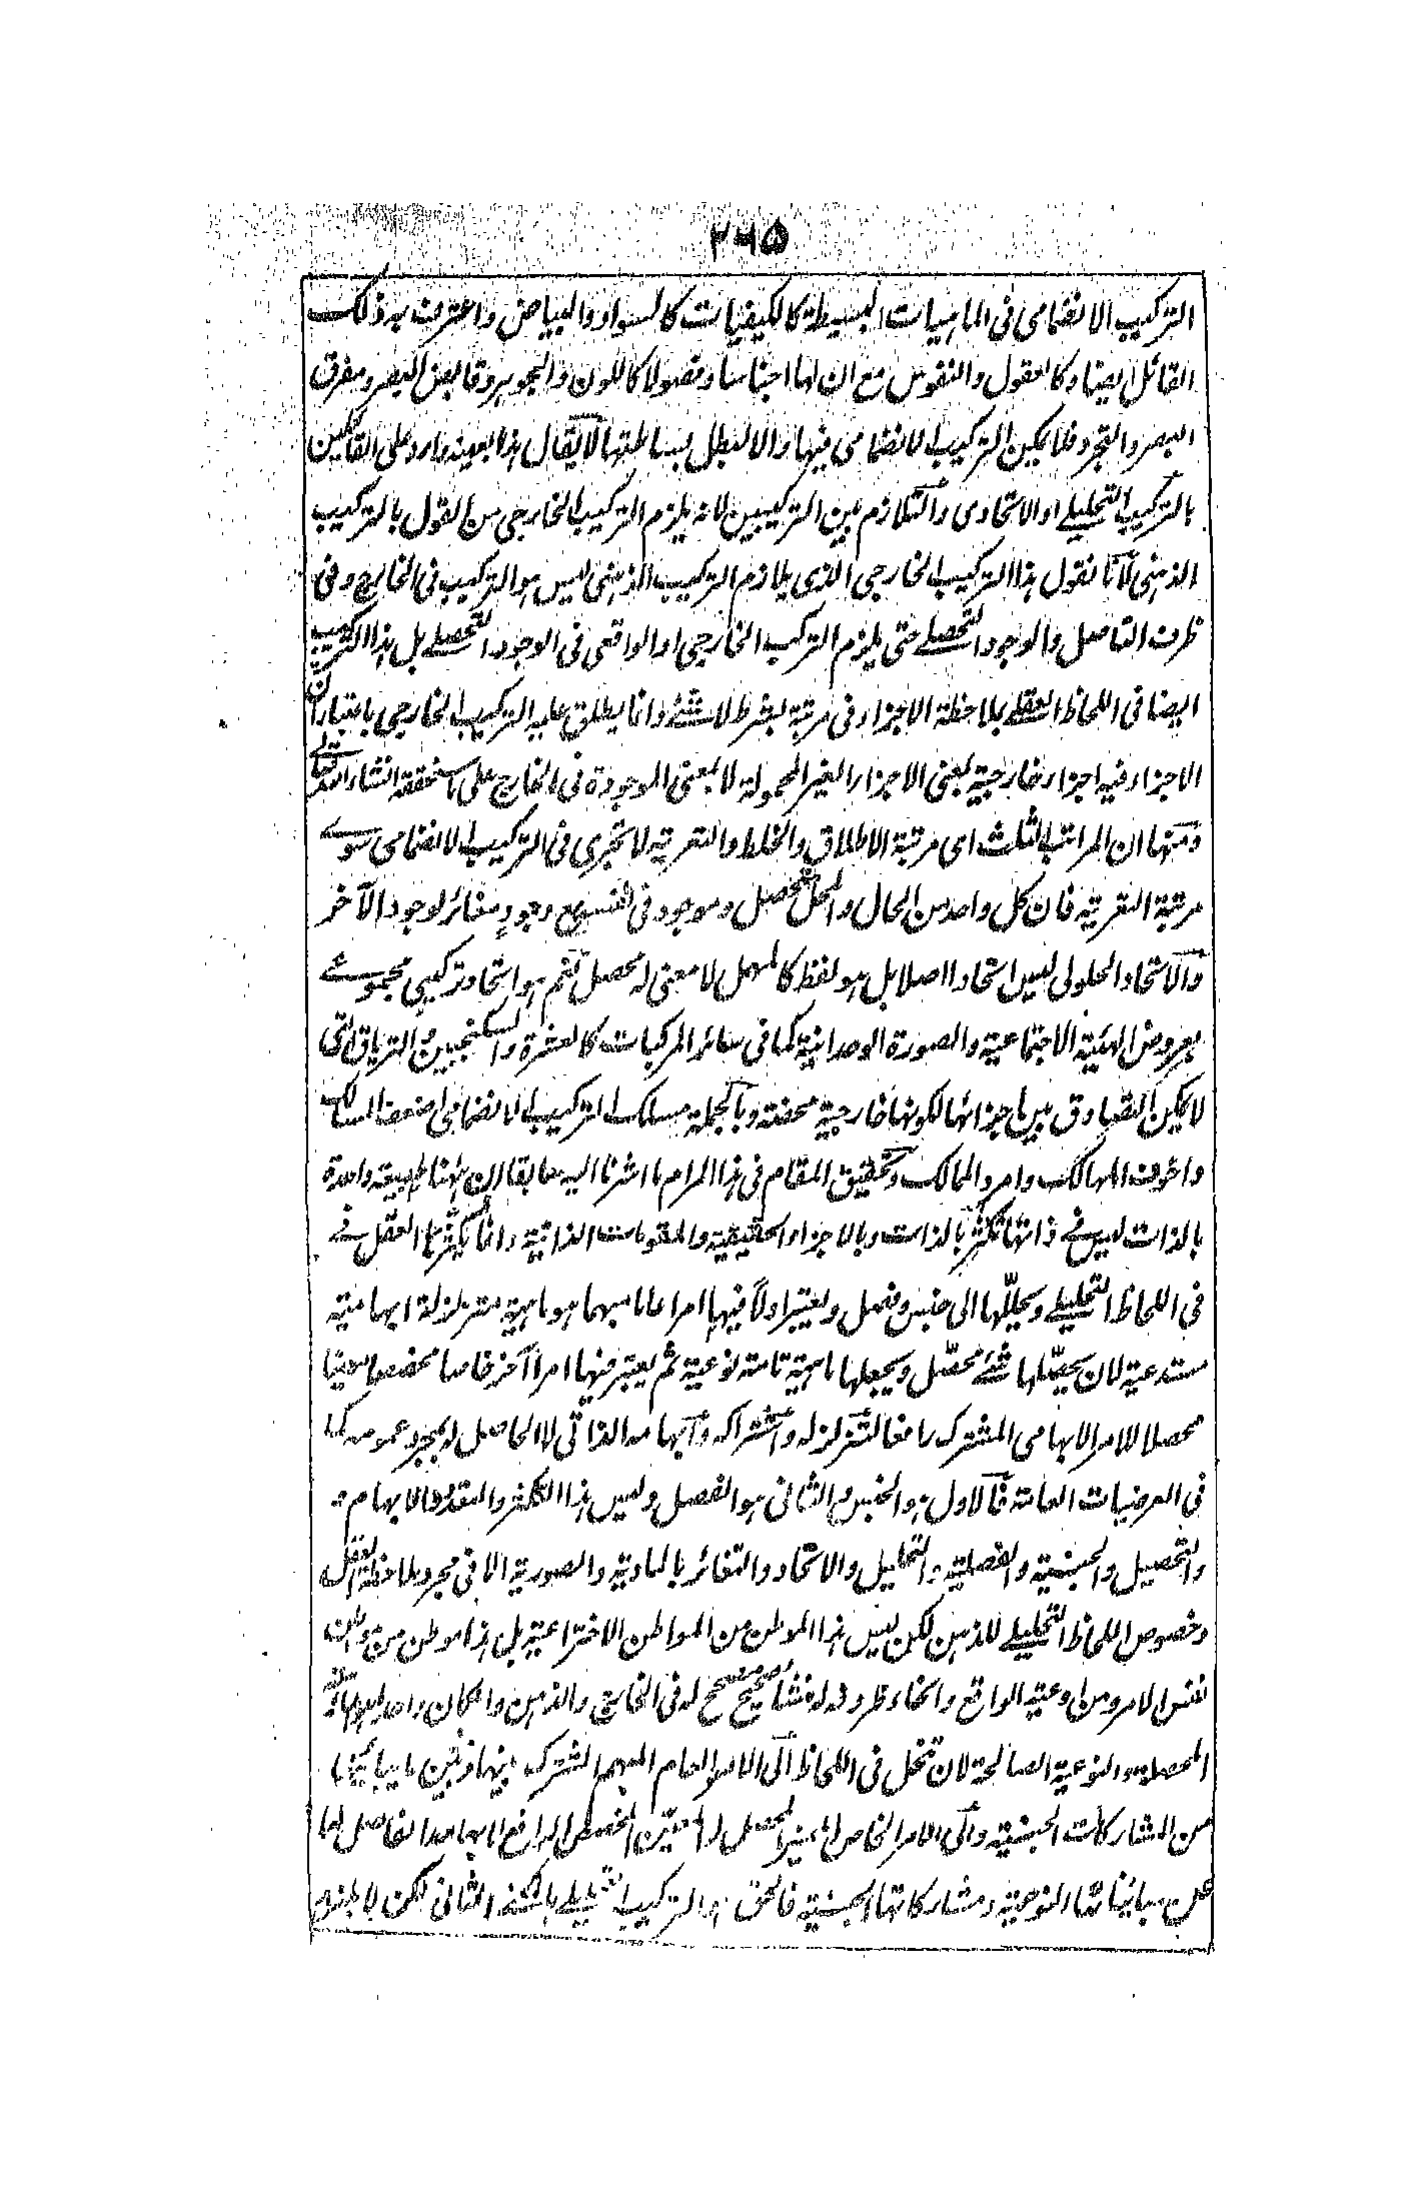 ٢٦٥
التركيب الانضمامى فى الماهيات البسيطة كالكيفيات كالسواد والبياض واعترف به ذلك
القائل ايضا وكالعقول والنفوس مع ان لها اجناسا وفصولا كاللون والجوهر وقابض البصر ومفرق
البصر والتجرد فلا يمكن التركيب الانضمامى فيها والا لبطل بساطتها لا يقال هذا بعينه وارد على القائلين
بالتركيب التحليلے او الاتحادى والتلازم بين التركيبين لانه يلزم التركيب الخارجى من القول بالتركيب
الذهنى لانا نقول هذا التركيب الخارجى الذى يلازم التركيب الذهنى ليس هو التركيب فى الخارج وفى
ظرف التاصل والوجود التحصلے حتى يلزم التركب الخارجى او الواقعى فى الوجود التحصلے بل هذا التركيب
ايضا فى اللحاظ العقلے بملاحظة الاجزاء فى مرتبة بشرط لا شئے وانما يطلق عليه التركيب الخارجى باعتبار ان
الاجزاء فيه اجزاء خارجية بمعنى الاجزاء الغير المحمولة لا بمعنى الموجودة فى الخارج على ما سنحققه انشاء الله تعالے
ومنها ان المراتب الثلث اى مرتبة الاطلاق والخلط والتعرية لا تجرى فى التركيب الانضمامى سوے
مرتبة التعرية فان كل واحد من الحال والمحل محصل وموجود فى نفسه مع وجودٍ مغائر لوجود الآخر
والاتحاد الحلولى ليس اتحادا اصلا بل هو لفظ كالمهمل لا معنى له محصل نعم هو اتحاد تركيبى مجموعے
بعروض الهيئة الاجتماعية والصورة الوحدانية كما فى سائر المركبات كالعشرة والسكنجبين والترياق التى
لا يمكن التصادق بين اجزائها لكونها خارجية محضة وبالجملة مسلك التركيب الانضمامى اضعف المسالك
واخوف المهالك وامر والممالك وتحقيق المقام فى هذا المرام ما اشرنا اليه سابقا ان هٰهنا طبيعة واحدة
بالذات ليس فے ذاتها تكثر بالذات وبالاجزاء الحقيقية والمقومات الذاتية وانما يكثرها العقل فے
فى اللحاظ التحليلے ويحلّلها الى جنس وفصل ويعتبر اولاً فيها امرا عاما مبهما هو ماهية متزلزلة ابهامية
مستدعية لان يحصّلها شئے محصّل ويجعلها ماهية تامة نوعية ثم يعتبر فيها امراً آخر خاصا مخصصا معينا
محصلا للامر الابهامى المشترك رافعا لتزلزله واشتراكه وابهامه الذاتى لا الحاصل له بمجرد عمومه كما
فى العرضيات العامة فالاول هو الجنس والثانى هو الفصل وليس هذا التكثر والتعدد والابهام
والتحصيل والجنسية والفصلية والتحليل والاتحاد والتغائر بالمادية والصورية الا فى مجرد ملاحظة العقل
وخصوص اللحاظ التحليلے للذهن لكن ليس هذا الموطن من المواطن الاختراعية بل هذا موطن من مواطن
نفس الامر ومن اوعية الواقع وانحاء ظروفه له منشأ صحيح مصحح له فى الخارج والذهن وامكان واحد لهوية
المحصلة والنوعية الصالحة لان تنحل فى اللحاظ الى الامر العام المبهم المشترك بينها وبين ما يباينها
من المشاركات الجنسية والى الامر الخاص المميز المحصل له المعين المخصص الرافع لابهامه الفاصل لها
عن مبايناتها النوعية ومشاركاتها الجنسية فالحق هو التركيب التحليلے بالنحو الثانى لكن لا يلزم